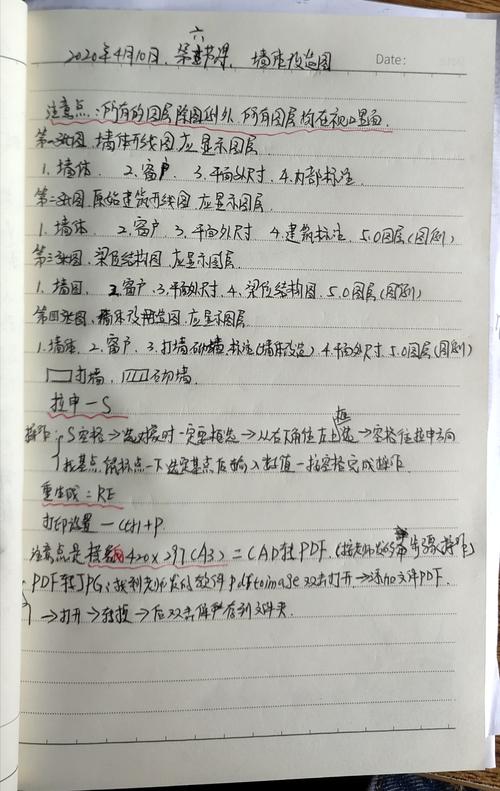 2020年4月10日,第六节课,墙体改造图 Date:
注意点:所有的图层除图例外,所有图层均在视口里面.
第一张图,墙体开线图应显示图层
1.墙体. 2.窗户. 3.平面外尺寸. 4.内部标注.
第二张图,原始建筑开线图,应显示图层.
1.墙体. 2.窗户. 3.平面外尺寸 4.建筑标注. 5.0图层(图例)
第三张图,梁位结构图,应显示图层.
1.墙图. 2.窗户.3.平面外尺寸.4、梁位结构图.5.0图层(图例)
第四张图,墙体改造图,应显示图层.
1.墙体. 2.窗户. 3.打墙砌墙标注(墙体改造) 4.平面外尺寸.5.0图层(图例)
打墙, 砌墙.
拉申—S
操作:S空格→选对象时一定要框选→从右下角往左上框选→空格往拉申方向
找基点鼠标点一下选定基点后输入数值—按空格完成操作.
重生成:RE
打印设置—Ctrl+P.
注意点是 420×297(A3)=CAD转PDF.(按老师发的步骤操作)
PDF转JPG:找到老师发的软件Pdftoimage双击打开→添加文件PDF.
→打开→转换→后双击 存到文件夹.